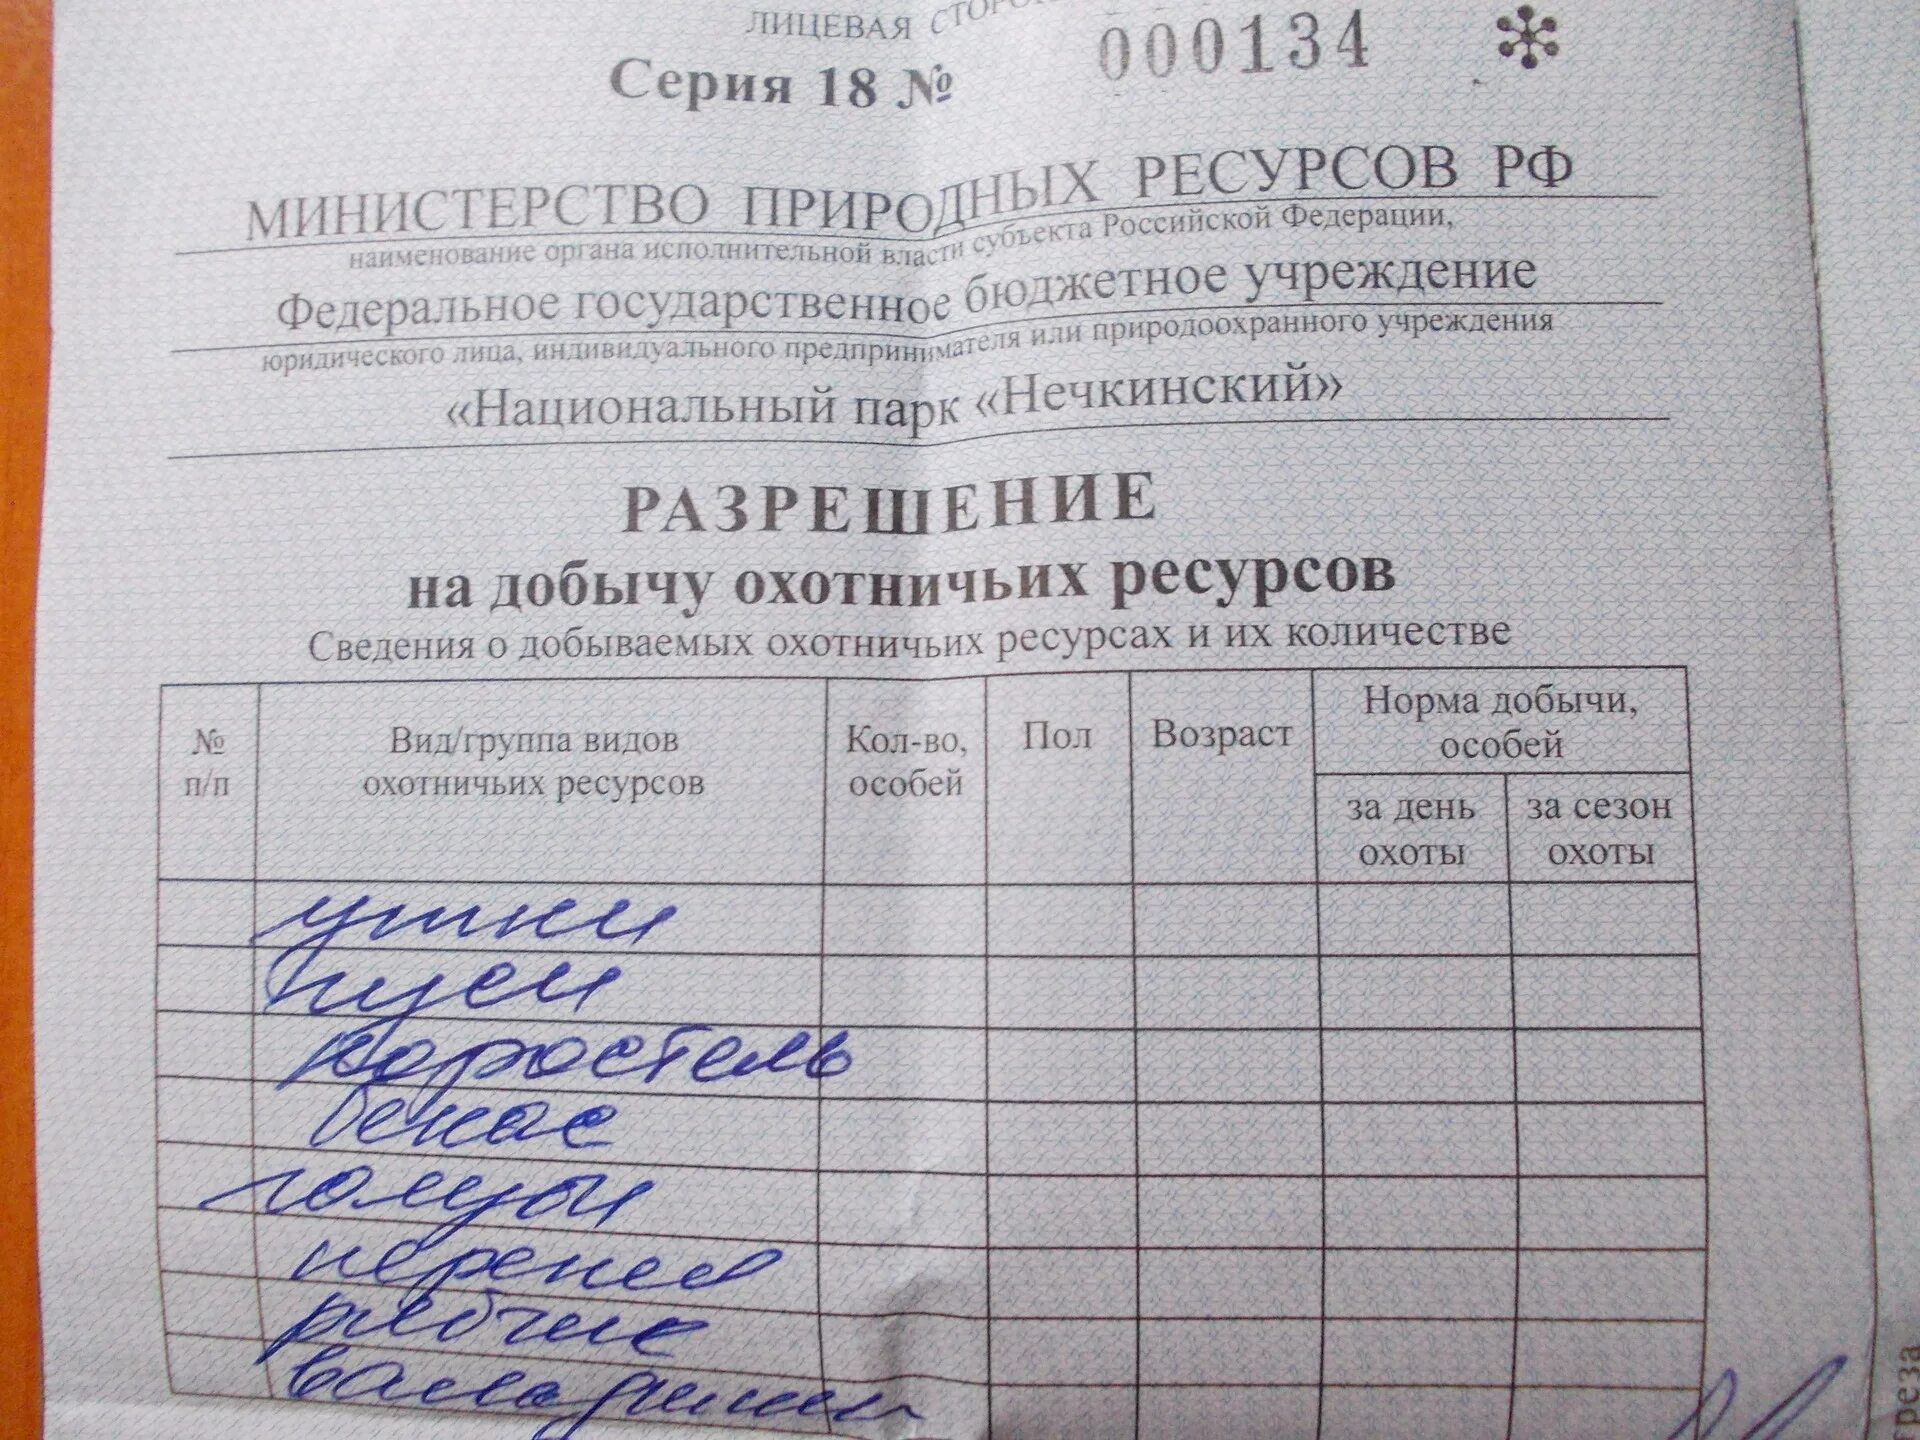 ЛИЦЕВАЯ СТОРОНА
Серия 18 № 000134
МИНИСТЕРСТВО ПРИРОДНЫХ РЕСУРСОВ РФ
наименование органа исполнительной власти субъекта Российской Федерации,
Федеральное государственное бюджетное учреждение
юридического лица, индивидуального предпринимателя или природоохранного учреждения
«Национальный парк «Нечкинский»
РАЗРЕШЕНИЕ
на добычу охотничьих ресурсов
Сведения о добываемых охотничьих ресурсах и их количестве
№ п/п
Вид/группа видов охотничьих ресурсов
Кол-во, особей
Пол
Возраст
Норма добычи, особей
за день охоты
за сезон охоты
утки
гуси
коростель
бекас
голуби
перепел
рябчик
вальдшнеп